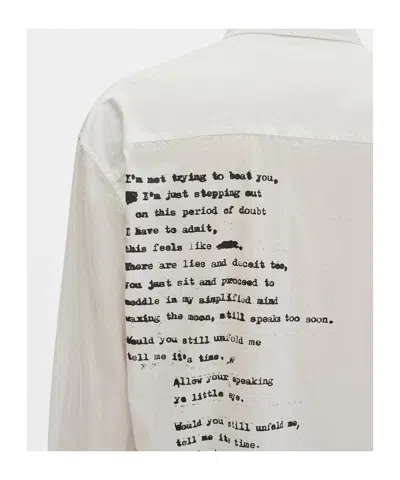 I'm not trying to beat you,
I'm just stepping out
on this period of doubt
I have to admit,
this feels like
There are lies and deceit too,
you just sit and proceed to
meddle in my simplified mind
waxing the moon, still speaks too soon.
Would you still unfold me
tell me it's time.
Allow your speaking
ye little eye.
Would you still unfold me,
tell me its time.